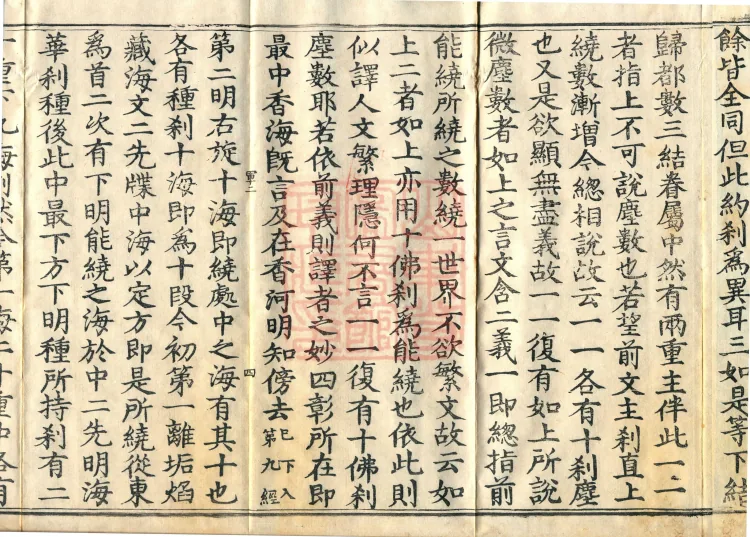 餘皆全同但此約刹爲異耳三如是等下結
歸都數三結眷屬中然有兩重主伴此一二
者指上不可說塵數也若望前文主刹直上
繞數漸增今總相說故云一一各有十刹塵
也又是欲顯無盡義故一一復有如上所說
微塵數者如上之言文含二義一即總指前
能繞所繞之數繞一世界不欲繁文故云如
上二者如上亦用十佛刹爲能繞也依此則
似譯人文繁理隱何不言一一復有十佛刹
塵數耶若依前義則譯者之妙四彰所在即
最中香海既言及在香河明知傍去巳下入第九經
軍二
四
第二明右旋十海即繞處中之海有其十也
各有種刹十海即爲十段今初第一離垢焰
藏海文二先牒中海以定方即是所繞從東
爲首二次有下明能繞之海於中二先明海
華刹種後此中最下方下明種所持刹有二
十重